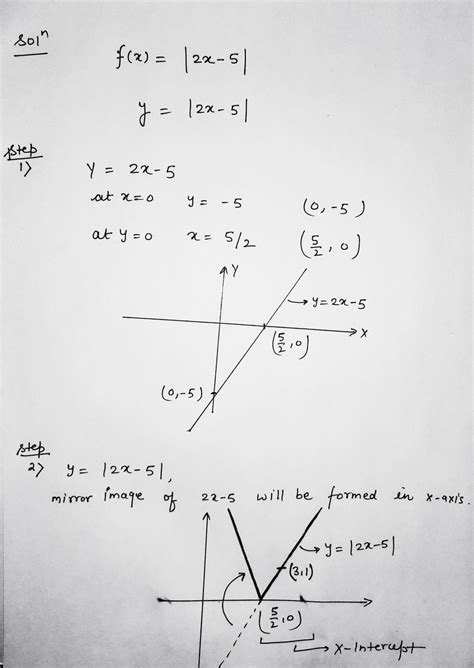 Solⁿ
f(x) = |2x-5|
y = |2x-5|
Step
1)
Y = 2x-5
at x=0 y = -5 (0, -5)
at y=0 x = 5/2 (5/2, 0)
Y
y=2x-5
X
(5/2, 0)
(0,-5)
Step
2) y = |2x-5|,
mirror image of 2x-5 will be formed in x-axis.
y = |2x-5|
(3,1)
(5/2, 0)
X-Intercept